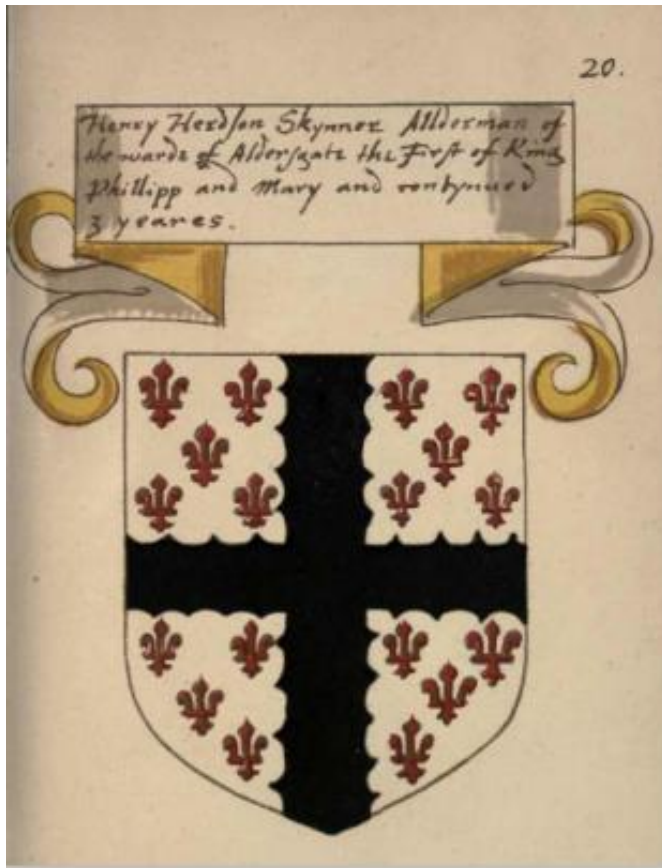 20.
Henry Herdson Skynner Allderman of
the warde of Aldersgate the First of King
Phillipp and Mary and contynued
3 yeares.